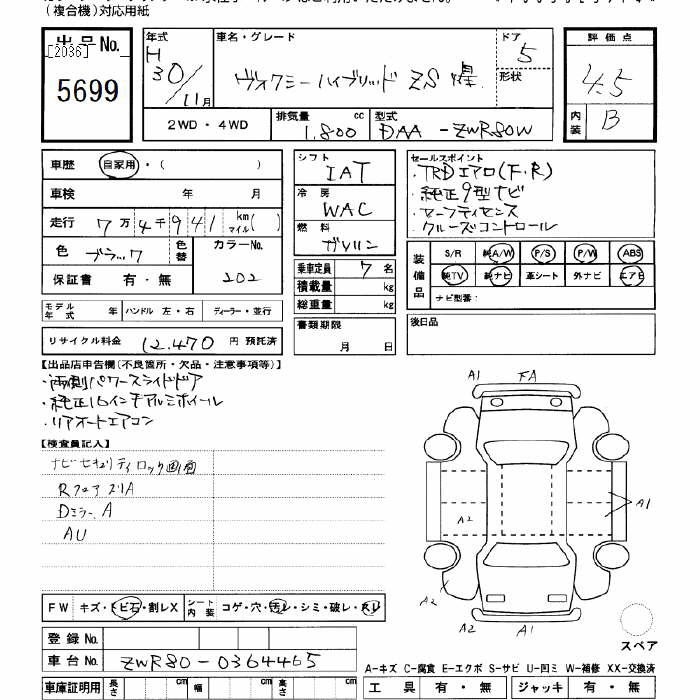 (複合機)対応用紙
出品No.
[2036]
5699
年式 車名・グレード ドア 5
H 30/11月 ヴォクシーハイブリッド ZS 煌 形状
評価点
4.5
内装 B
2WD・4WD 排気量 1.800 cc 型式 DAA-ZWR80W
車歴 自家用・( )
車検 年 月
走行 7万4千941 km マイル( )
色 ブラック 色替 カラーNo. 202
保証書 有・無
モデル年式 年 ハンドル 左・右 ディーラー・並行
リサイクル料金 12.470 円 預託済
シフト IAT
冷房 WAC
燃料 ガソリン
乗車定員 7 名
積載量 kg
総重量 kg
書類期限
月 日
セールスポイント
・TRDエアロ(F.R)
・純正9型ナビ
・セーフティセンス
クルーズコントロール
装備品 S/R 純A/W P/S P/W ABS
純TV 純ナビ 革シート 外ナビ エアB
ナビ型番:
後日品
【出品店申告欄(不良箇所・欠品・注意事項等)】
・両側パワースライドドア
・純正16インチアルミホイール
・リアオートエアコン
【検査員記入】
ナビセキュリティロック画面
Rフェア ズリA
Dミラー A
AU
A1 FA
A2
A1
A2
A2 A1
スペア
FW キズ・トビ石・割レX シート内装 コゲ・穴・汚レ・シミ・破レ・スレ
登録No.
車台No. ZWR80-0364465
車庫証明用 長さ cm 幅 cm 高さ cm
A-キズ C-腐食 E-エクボ S-サビ U-凹ミ W-補修 XX-交換済
工具 有・無 ジャッキ 有・無